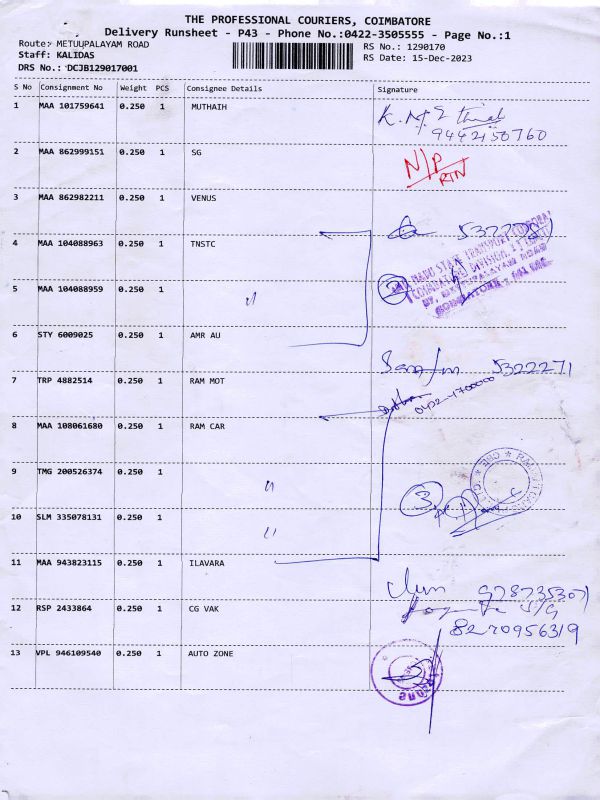 THE PROFESSIONAL COURIERS, COIMBATORE
Delivery Runsheet - P43 - Phone No.:0422-3505555 - Page No.:1
Route: METUUPALAYAM ROAD
RS No.: 1290170
Staff: KALIDAS
RS Date: 15-Dec-2023
DRS No.: DCJB129017001
S No Consignment No Weight PCS Consignee Details Signature
1 MAA 101759641 0.250 1 MUTHAIH
9442150760
2 MAA 862999151 0.250 1 SG N/P
RTN
3 MAA 862982211 0.250 1 VENUS
4 MAA 104088963 0.250 1 TNSTC
5 MAA 104088959 0.250 1 "
6 STY 6009025 0.250 1 AMR AU
5322271
7 TRP 4882514 0.250 1 RAM MOT
8 MAA 108061680 0.250 1 RAM CAR
9 TMG 200526374 0.250 1 "
3
10 SLM 335078131 0.250 1 "
11 MAA 943823115 0.250 1 ILAVARA
12 RSP 2433864 0.250 1 CG VAK
8270956319
13 VPL 946109540 0.250 1 AUTO ZONE